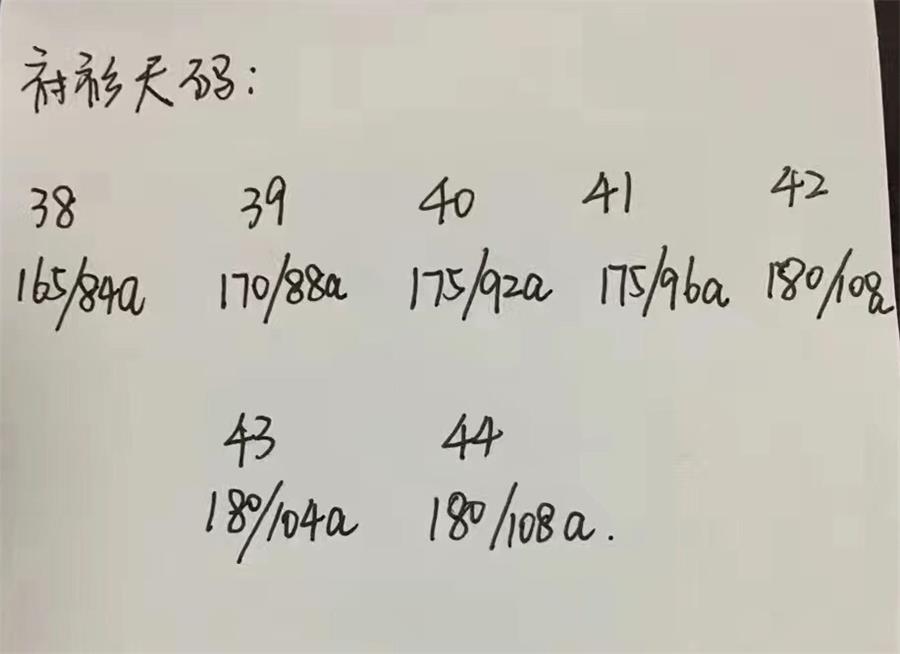 衬衫尺码:
38 39 40 41 42
165/84a 170/88a 175/92a 175/96a 180/108a
43 44
180/104a 180/108a.